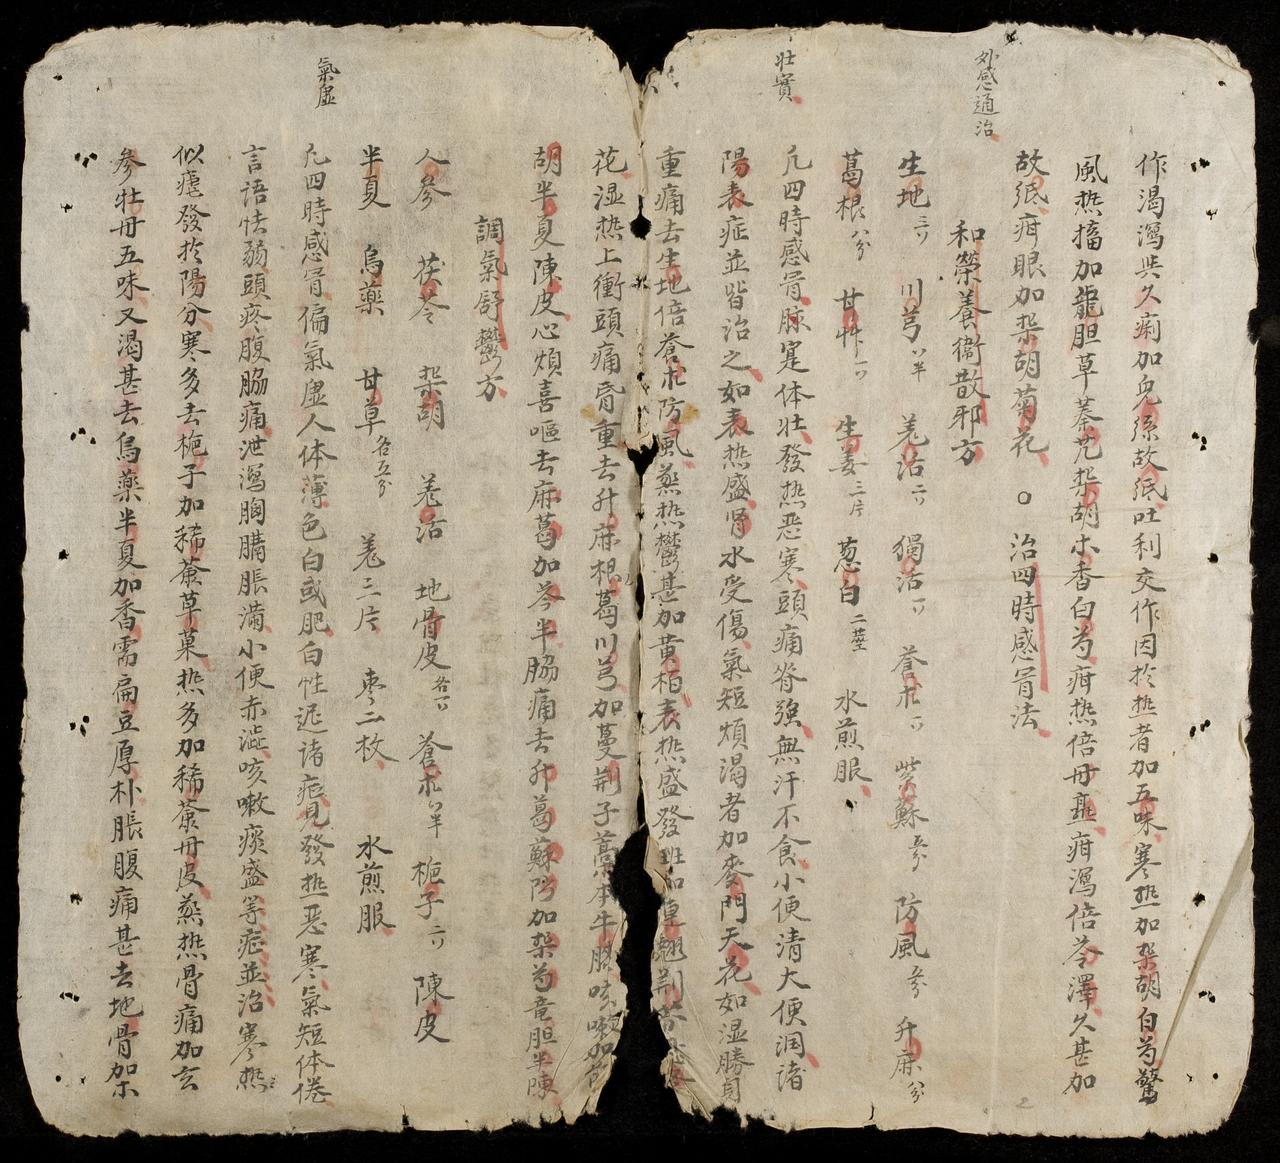 外感通治
壯實
氣虛
作渴瀉與久痢加兒孫故紙吐利交作因於热者加五味寒热加柴胡白芍驚
風热搐加龍胆草蓁艽柴胡木香白芍疳热倍毋疳瀉倍苓澤久甚加
故紙疳眼加柴胡菊花 ○ 治四時感冒法
和榮養衞散邪方
生地三 川芎半 羌活二 獨活 蒼朮 紫蘇五分 防風 升麻
葛根八分 甘艸 生姜三片 葱白二莖 水煎服
凢四時感冒脉寔体壮發热恶寒頭痛脊強無汗不食小便清大便润诸
陽表症並皆治之如表热盛肾水受傷氣短煩渴者加麥門天花如湿勝身
重痛去生地倍蒼朮防風蒸热鬱甚加黃栢表热盛發班加連翹荆芥
花湿热上衝頭痛昏重去升麻根葛川芎加蔓荆子藁本牛膝咳嗽加
胡半夏陳皮心煩喜嘔去麻葛加芩半脇痛去升葛蘇防加柴芍竜胆半陳
調氣舒鬱方
人參 茯苓 柴胡 羌活 地骨皮 蒼朮 梔子 陳皮
半夏 烏藥 甘草各五分 羌三片 枣二枚 水煎服
凢四時感冒偏氣虛人体薄色白或肥白性迟诸症見發热恶寒氣短体倦
言语怯弱頭疼腹脇痛泄瀉胸膈脹满小便赤澁咳嗽痰盛等症並治寒热
似瘧發於陽分寒多去梔子加稀薟草菓热多加稀薟丹皮蒸热骨痛加玄
參牡丹五味又渴甚去烏藥半夏加香需扁豆厚朴脹腹痛甚去地骨加木